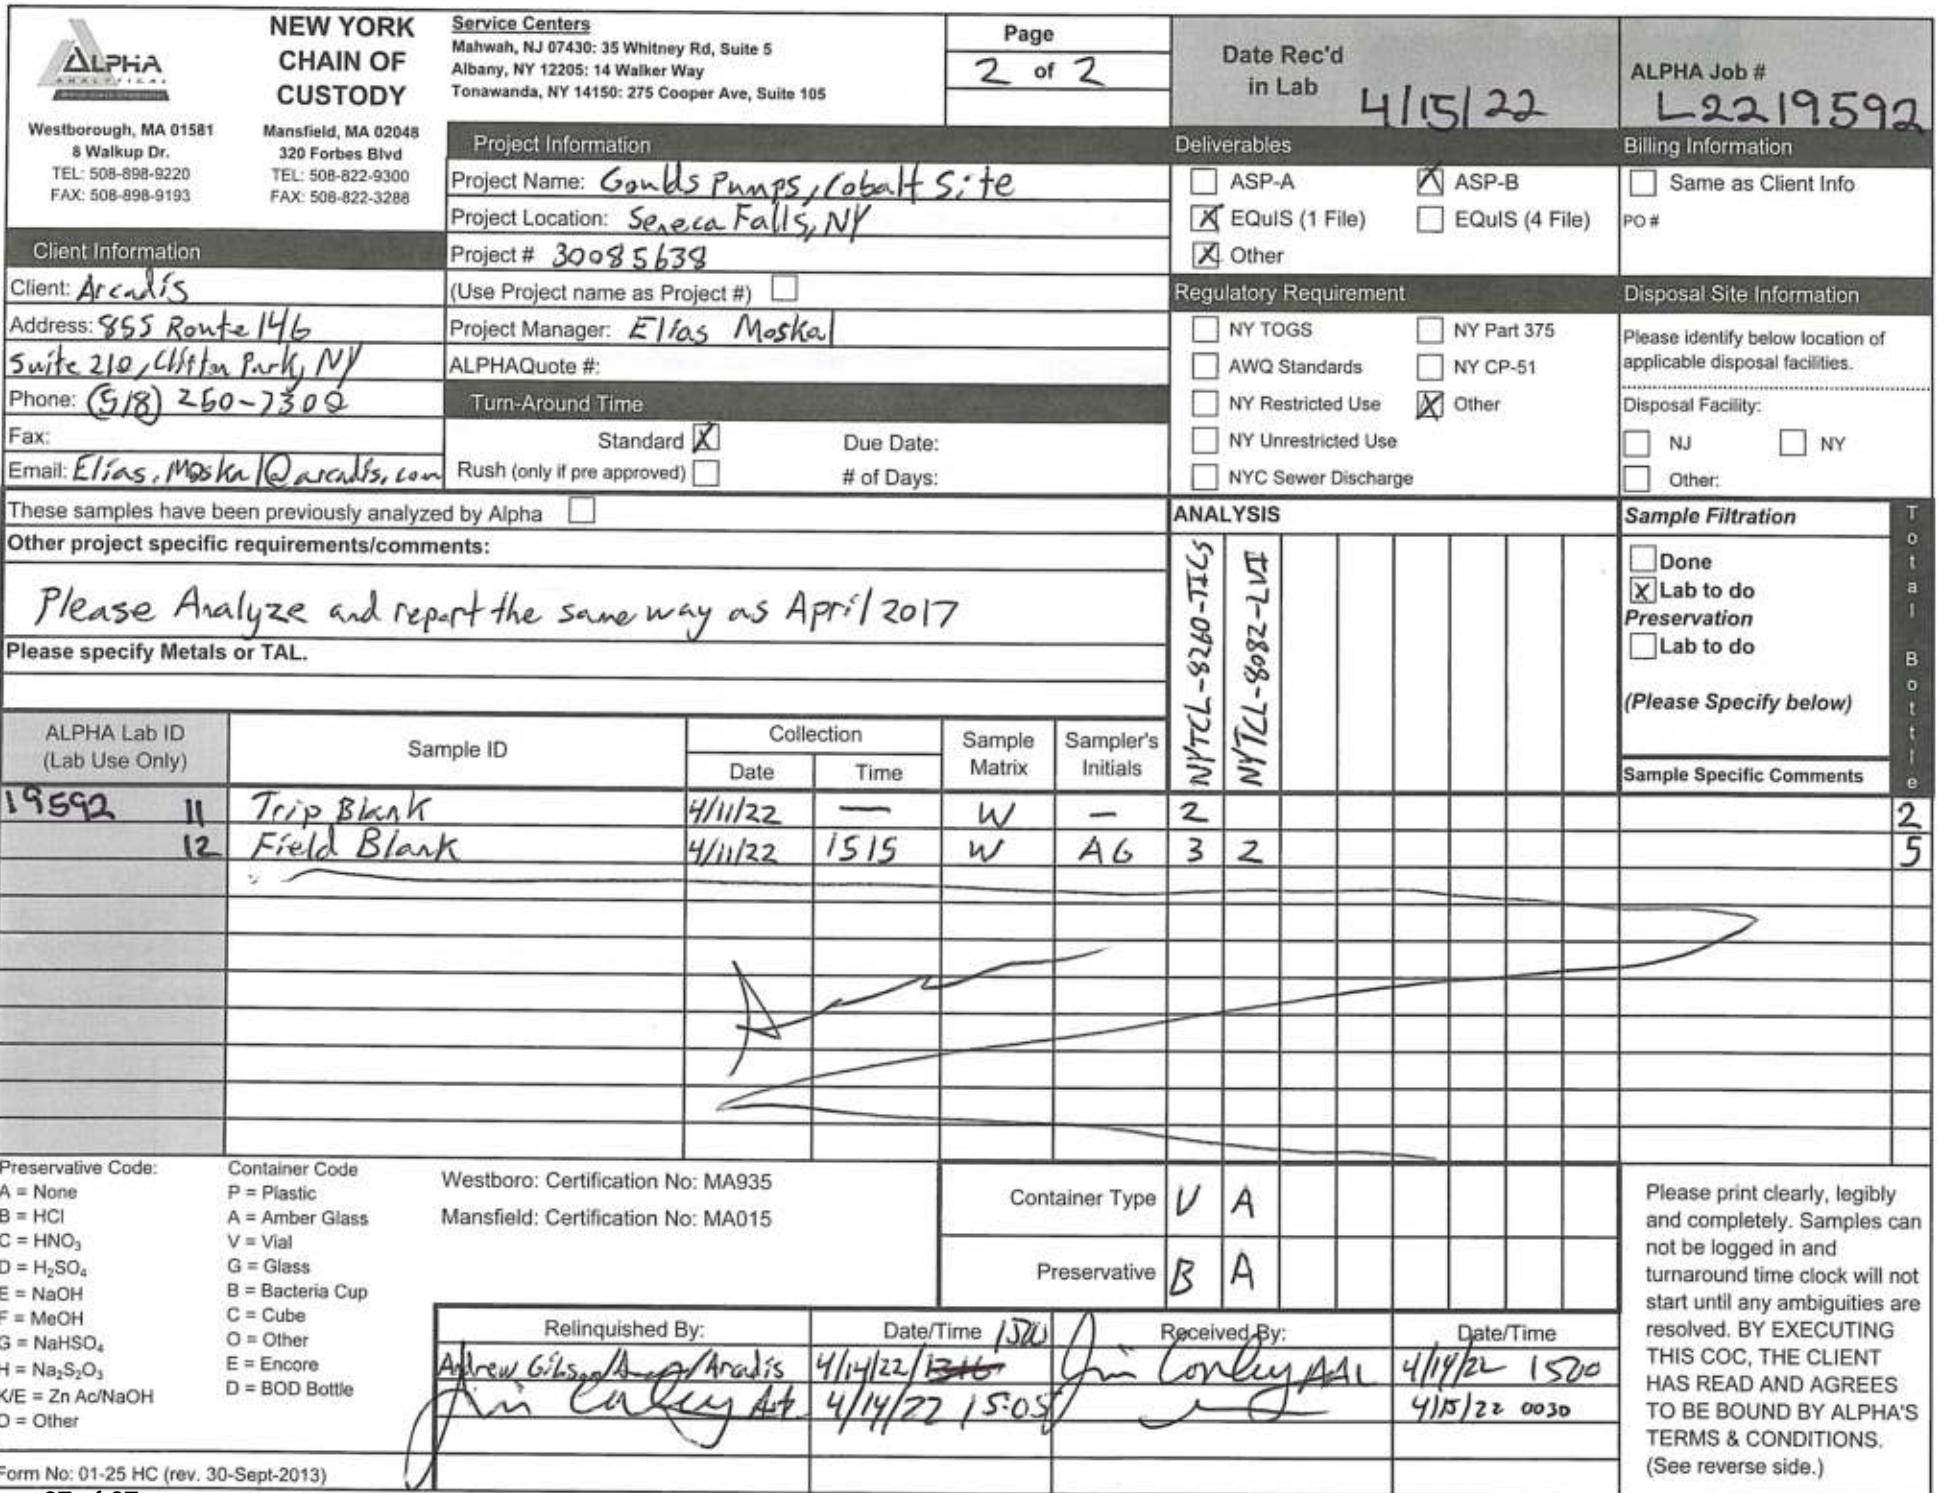 ALPHA
ANALYTICAL
Westborough, MA 01581
8 Walkup Dr.
TEL: 508-898-9220
FAX: 508-898-9193
NEW YORK
CHAIN OF
CUSTODY
Mansfield, MA 02048
320 Forbes Blvd
TEL: 508-822-9300
FAX: 508-822-3288
Service Centers
Mahwah, NJ 07430: 35 Whitney Rd, Suite 5
Albany, NY 12205: 14 Walker Way
Tonawanda, NY 14150: 275 Cooper Ave, Suite 105
Page
2 of 2
Date Rec'd
in Lab 4/15/22
ALPHA Job #
L2219592
Client Information
Client: Arcadis
Address: 855 Route 146
Suite 210, Clifton Park, NY
Phone: (518) 250-7302
Fax:
Email: Elias.Moskal@arcadis.com
Project Information
Project Name: Goulds Pumps, Cobalt Site
Project Location: Seneca Falls, NY
Project # 30085638
(Use Project name as Project #)
Project Manager: Elias Moskal
ALPHAQuote #:
Turn-Around Time
Standard X Due Date:
Rush (only if pre approved) # of Days:
Deliverables
ASP-A X ASP-B
X EQuIS (1 File) EQuIS (4 File)
X Other
Regulatory Requirement
NY TOGS NY Part 375
AWQ Standards NY CP-51
NY Restricted Use X Other
NY Unrestricted Use
NYC Sewer Discharge
Billing Information
Same as Client Info
PO #
Disposal Site Information
Please identify below location of
applicable disposal facilities.
Disposal Facility:
NJ NY
Other:
These samples have been previously analyzed by Alpha
Other project specific requirements/comments:
Please Analyze and report the same way as April 2017
Please specify Metals or TAL.
ANALYSIS
NYTCL-8260-TICS
NYTCL-8082-LVI
Sample Filtration
Done
X Lab to do
Preservation
Lab to do
(Please Specify below)
Total Bottle
ALPHA Lab ID
(Lab Use Only)
Sample ID
Collection
Date Time
Sample
Matrix
Sampler's
Initials
Sample Specific Comments
19592 11 Trip Blank 4/11/22 — W — 2 2
12 Field Blank 4/11/22 1515 W AG 3 2 5
Preservative Code:
A = None
B = HCl
C = HNO₃
D = H₂SO₄
E = NaOH
F = MeOH
G = NaHSO₄
H = Na₂S₂O₃
K/E = Zn Ac/NaOH
O = Other
Container Code
P = Plastic
A = Amber Glass
V = Vial
G = Glass
B = Bacteria Cup
C = Cube
O = Other
E = Encore
D = BOD Bottle
Westboro: Certification No: MA935
Mansfield: Certification No: MA015
Container Type V A
Preservative B A
Relinquished By: Date/Time 1500 Received By: Date/Time
Andrew Gibson/Arcadis 4/14/22/ Jim Conley AAL 4/14/22 1500
Jim Conley 4/14/22 15:05 4/15/22 0030
Please print clearly, legibly
and completely. Samples can
not be logged in and
turnaround time clock will not
start until any ambiguities are
resolved. BY EXECUTING
THIS COC, THE CLIENT
HAS READ AND AGREES
TO BE BOUND BY ALPHA'S
TERMS & CONDITIONS.
(See reverse side.)
Form No: 01-25 HC (rev. 30-Sept-2013)